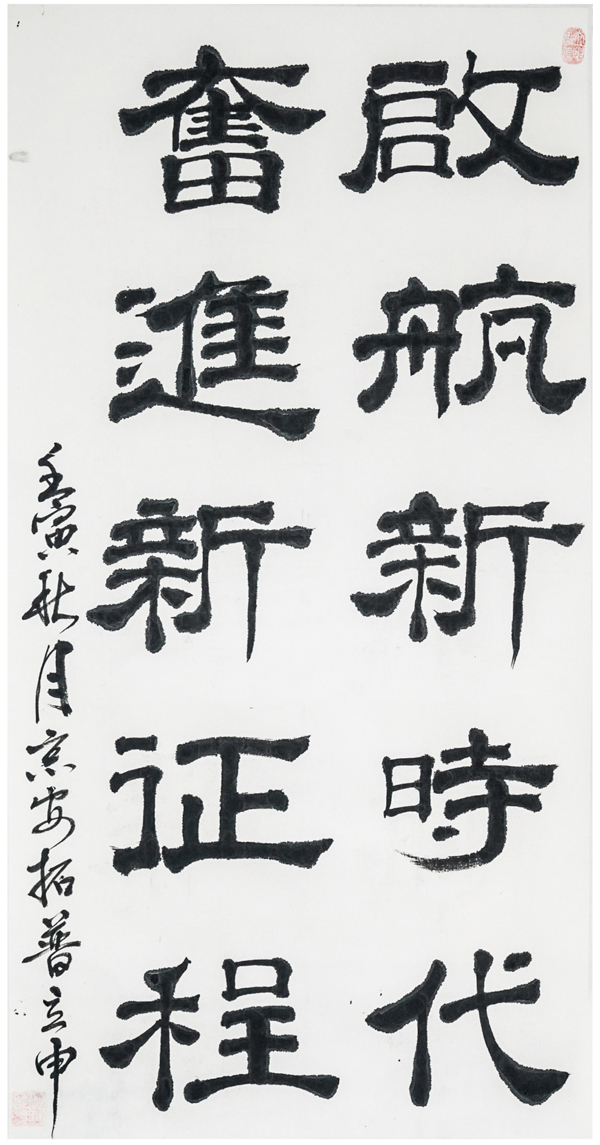 啟航新時代
奮進新征程
壬寅秋月京安拓普立申